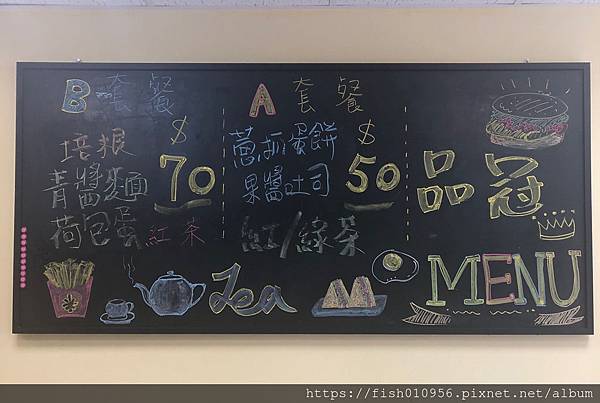 B 套餐
$
70
培根
青醬麵
荷包蛋 紅茶
A 套餐
$
50
蔥抓蛋餅
果醬吐司
紅/綠茶
品冠
Tea
MENU
https://fish010956.pixnet.net/album